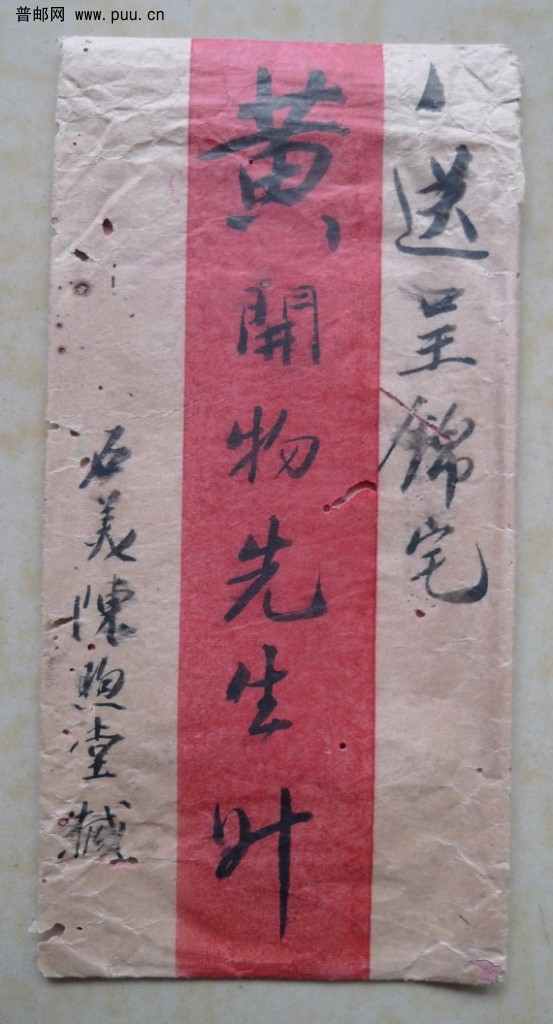 普邮网 www.puu.cn
送呈錦宅
黄開物先生升
石美陳煦堂緘